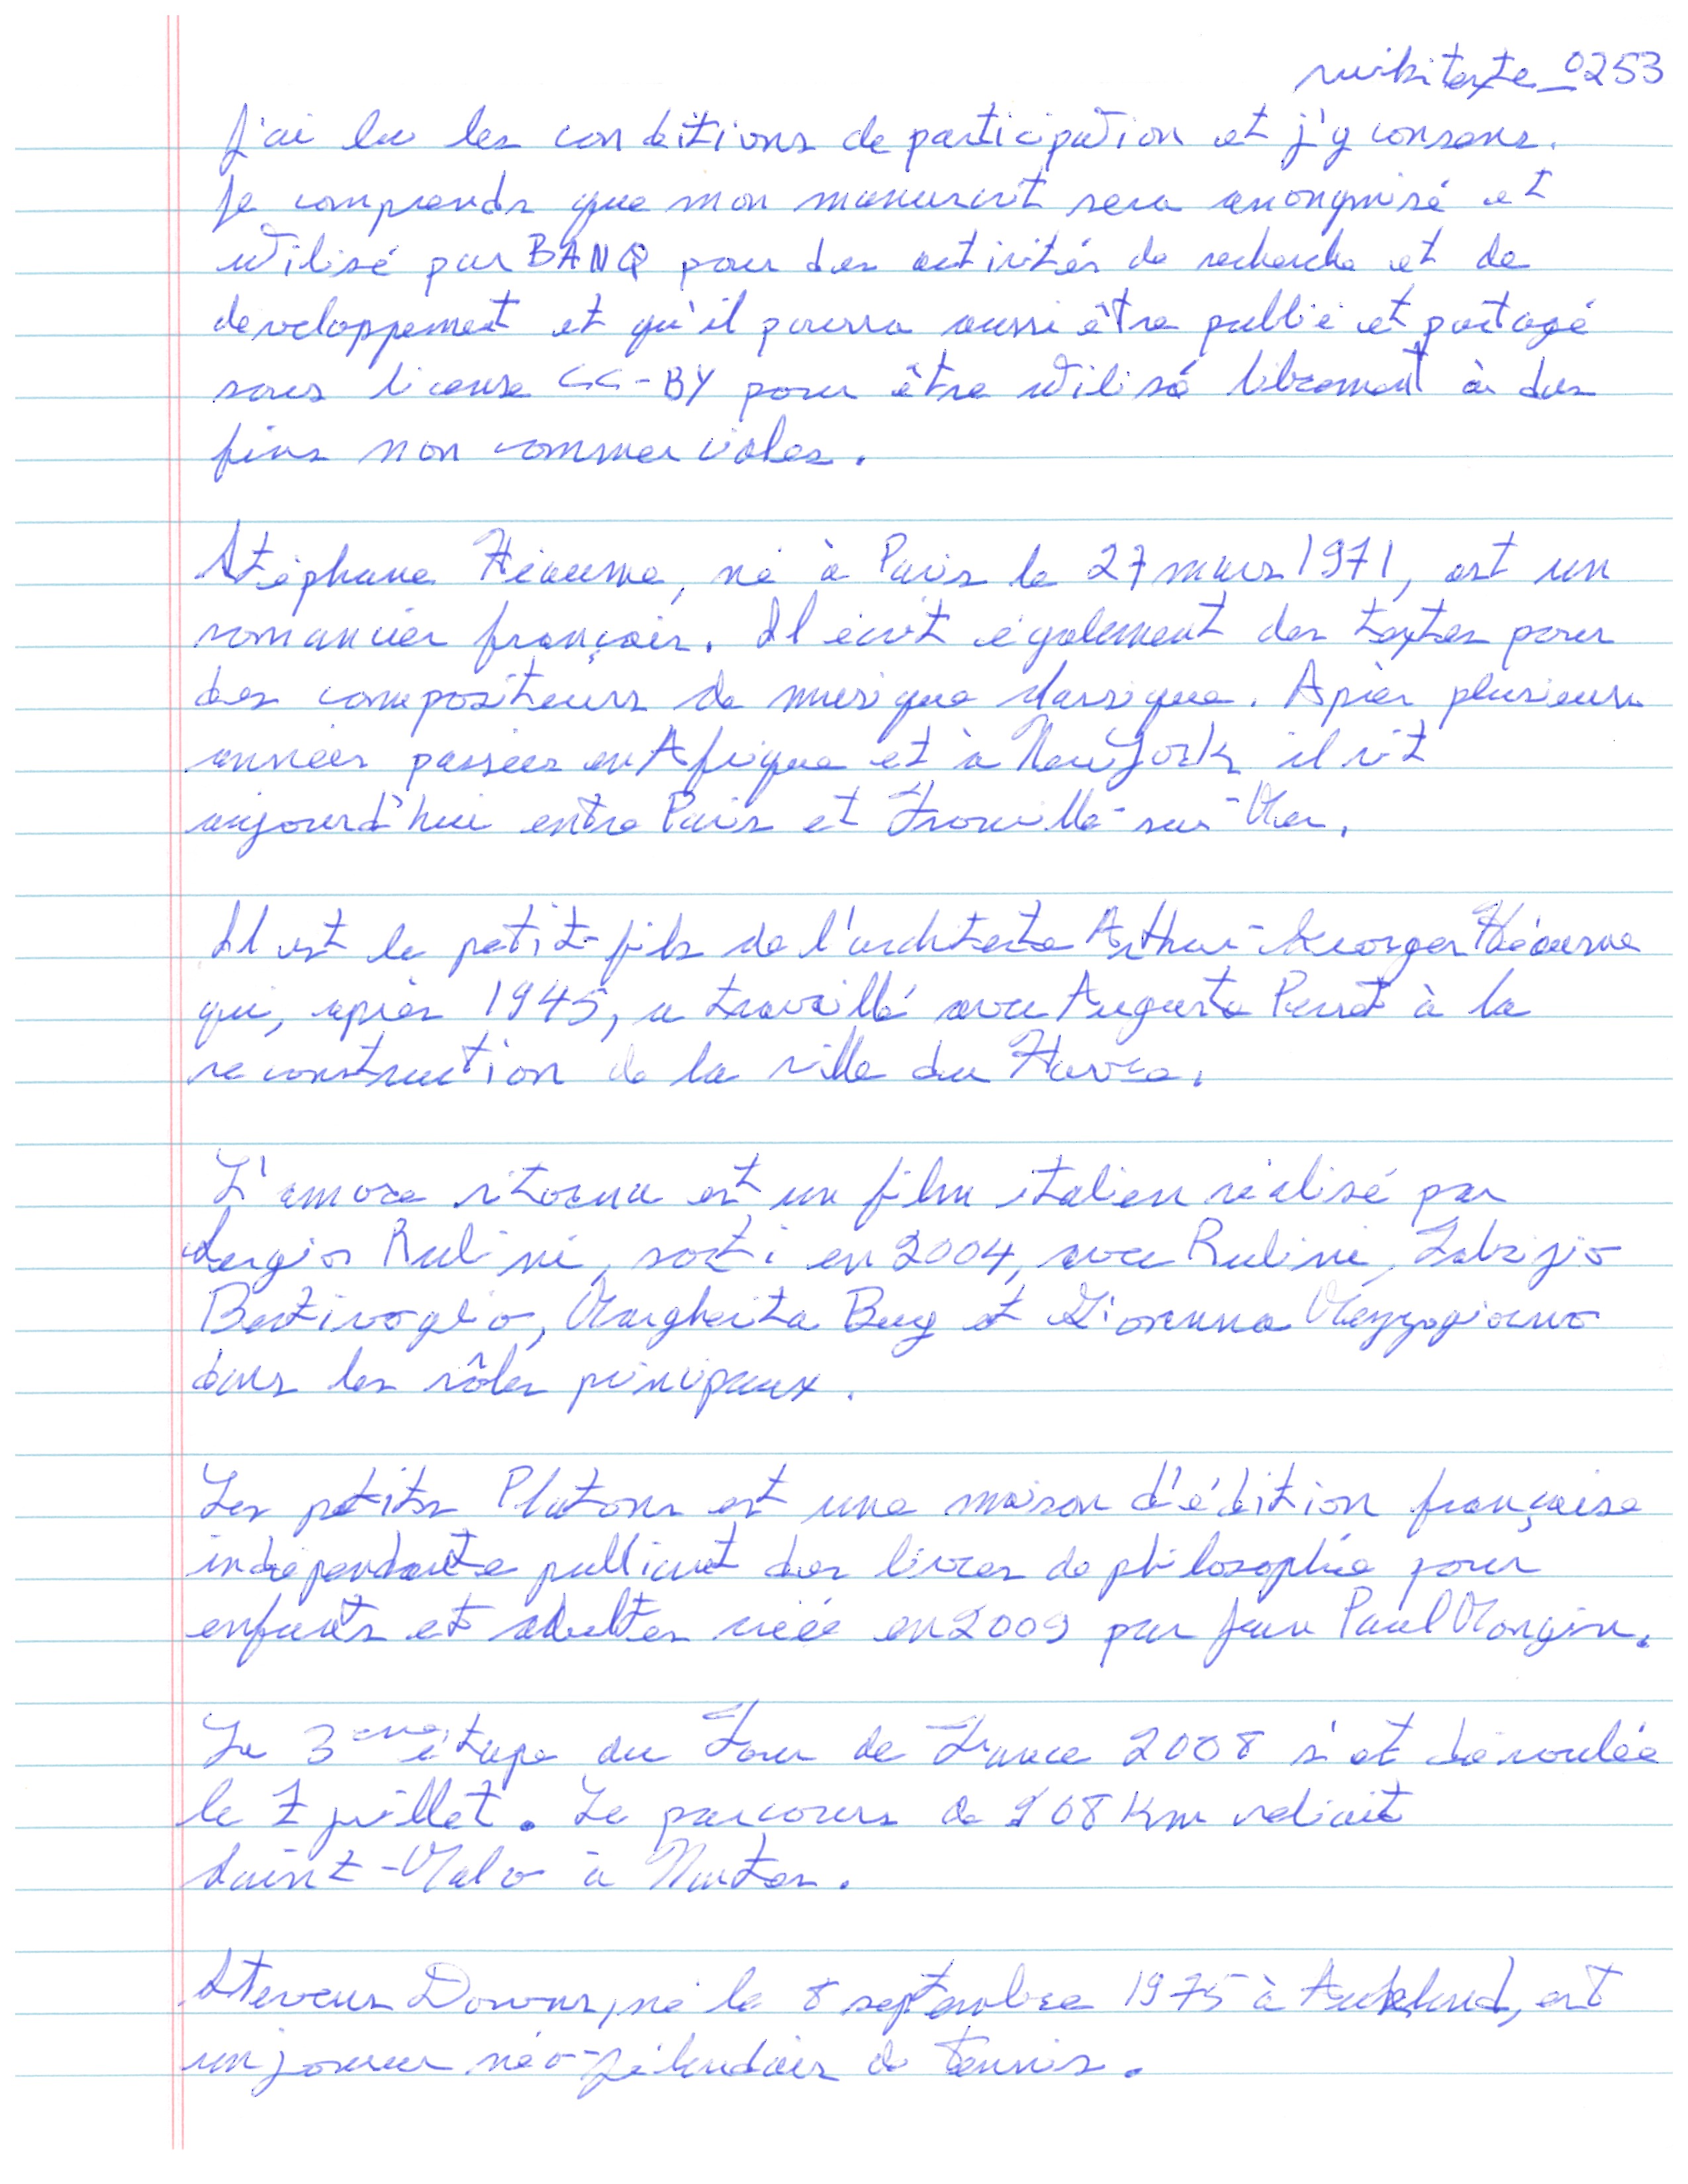 wikitexte_0253
J'ai lu les conditions de participation et j'y consens.
Je comprends que mon manuscrit sera anonymisé et
utilisé par BANQ pour des activités de recherche et de
développement et qu'il pourra aussi être publié et partagé
sous license CC-BY pour être utilisé librement à des
fins non commerciales.
Stéphane Héaume, né à Paris le 27 mars 1971, est un
romancier français. Il écrit également des textes pour
des compositeurs de musique classique. Après plusieurs
années passées en Afrique et à New York il vit
aujourd'hui entre Paris et Trouville-sur-Mer.
Il est le petit-fils de l'architecte Arthur-Georges Héaume
qui, après 1945, a travaillé avec Auguste Perret à la
reconstruction de la ville du Havre.
L'amore ritorna est un film italien réalisé par
Sergio Rubini, sorti en 2004, avec Rubini, Fabrizio
Bentivoglio, Margherita Buy et Giovanna Mezzogiorno
dans les rôles principaux.
Les petits Platons est une maison d'édition française
indépendante publiant des livres de philosophie pour
enfants et adultes créée en 2009 par Jean Paul Mongin.
La 3ème étape du Tour de France 2008 s'est déroulée
le 7 juillet. Le parcours de 208 Km reliait
Saint-Malo à Nantes.
Steven Downs, né le 8 septembre 1975 à Auckland, est
un joueur néo-zélandais de tennis.